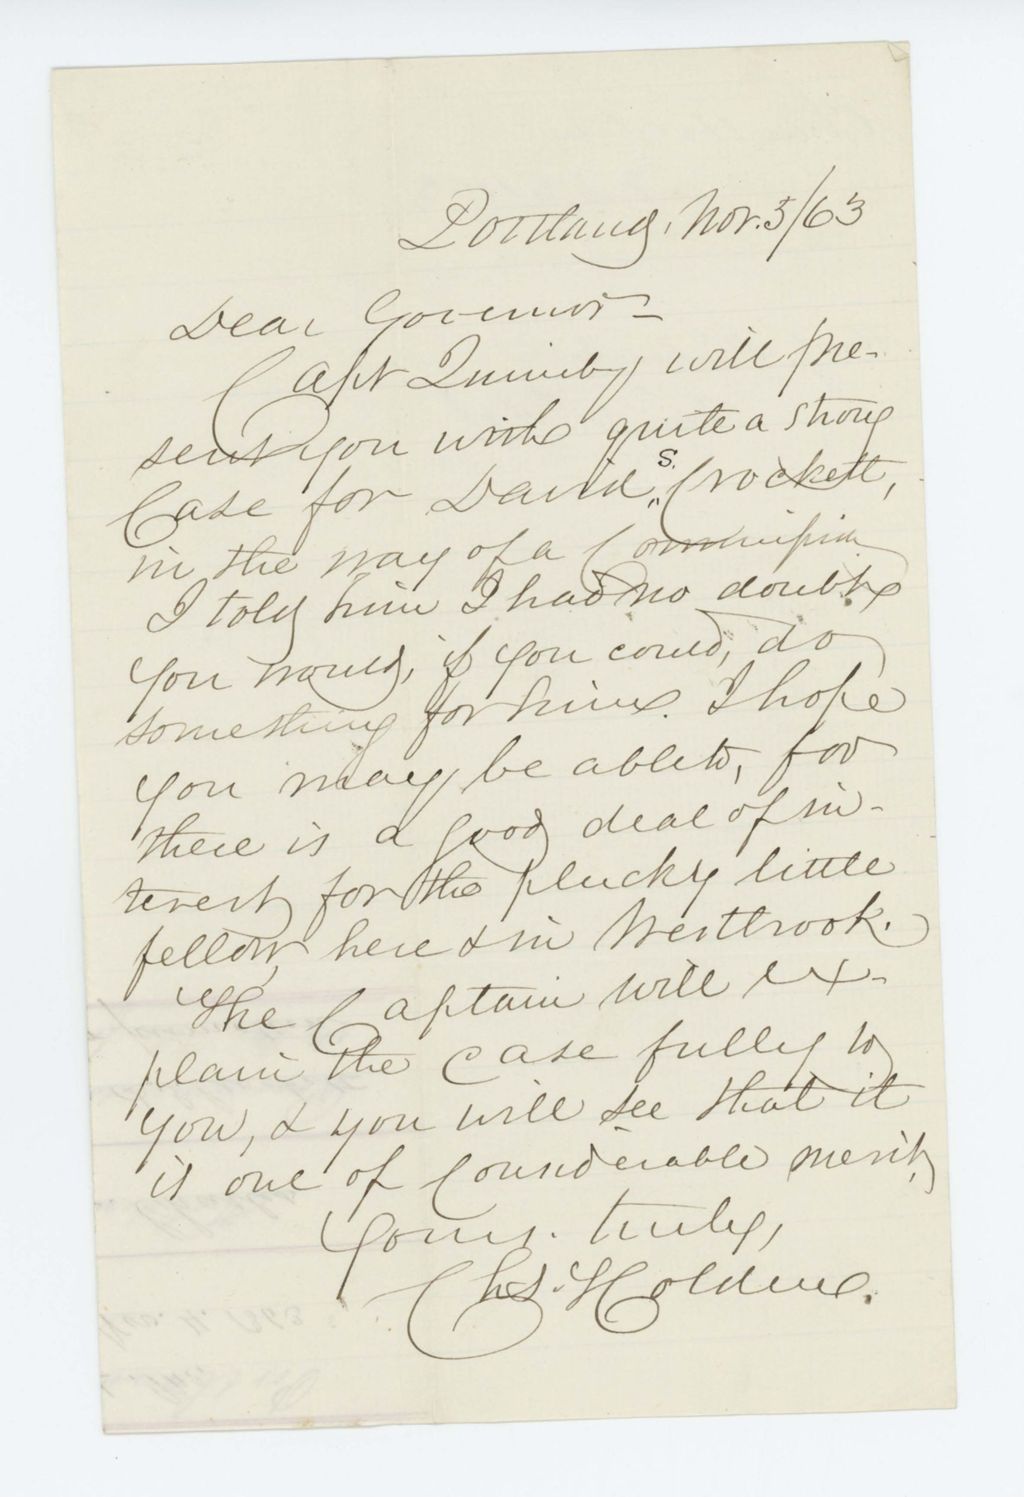 Portland, Nov. 3/63
Dear Governor—
Capt Quimby will pre-
sent you with quite a strong
Case for David S. Crockett,
in the way of a Commission
I told him I had no doubt
you would, if you could, do
something for him. I hope
you may be able to, for
there is a good deal of in-
terest for the plucky little
fellow, here & in Westbrook.
The Captain will ex-
plain the case fully to
you, & you will see that it
is one of considerable merit,
Yours. truly,
Chs. Holden.
Nov. 4. 1863